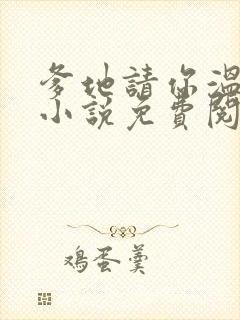 爹地請你溫
小說免費閱
鸡蛋羹